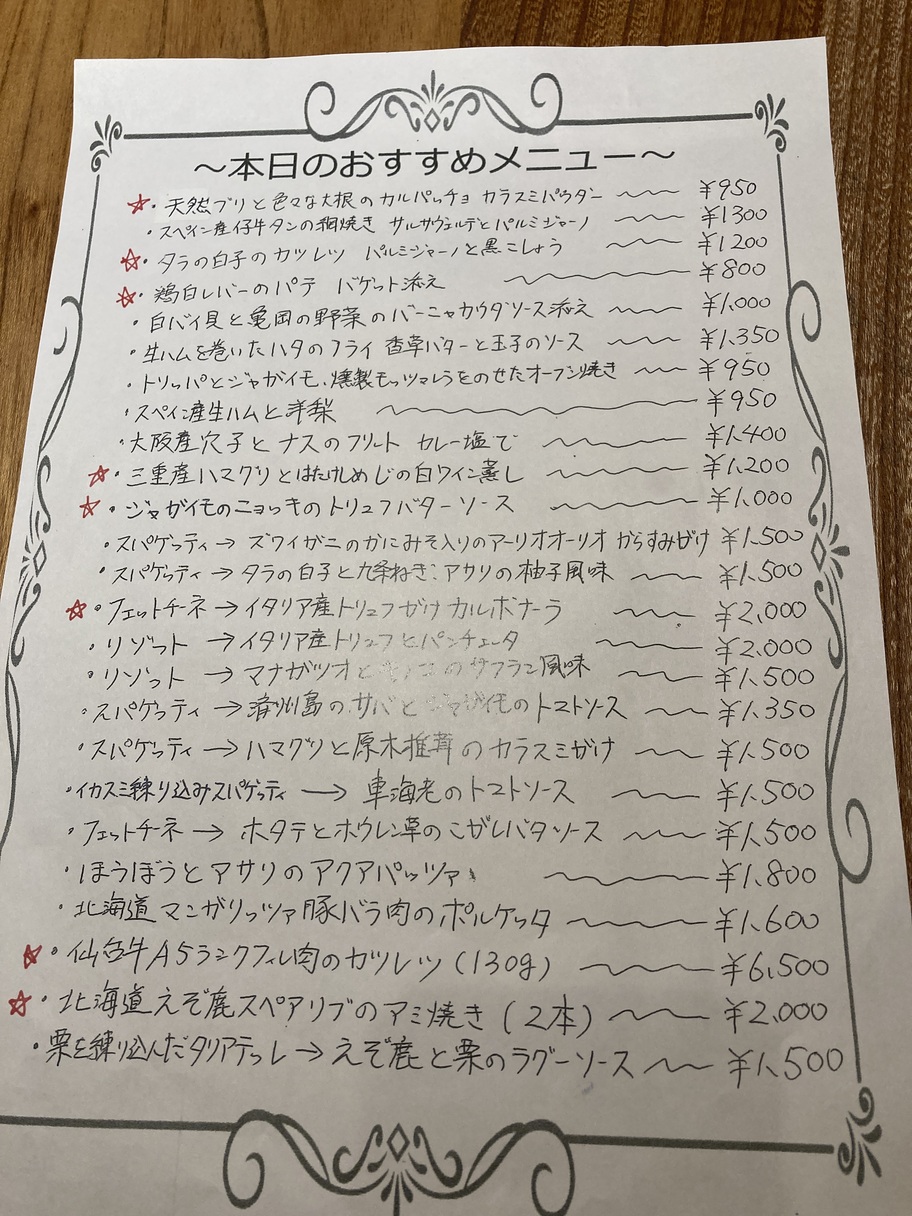 ～本日のおすすめメニュー～
☆・天然ブリと色々な大根のカルパッチョ カラスミパウダー ¥950
・スペイン産仔牛タンの網焼き サルサヴェルデとパルミジャーノ ¥1300
☆・タラの白子のカツレツ パルミジャーノと黒こしょう ¥1200
☆・鶏白レバーのパテ バゲット添え ¥800
・白バイ貝と亀岡の野菜のバーニャカウダソース添え ¥1,000
・生ハムを巻いたハタのフライ 香草バターと玉子のソース ¥1,350
・トリッパとジャガイモ、燻製モッツァレラをのせたオーブン焼き ¥950
・スペイン産生ハムと洋梨 ¥950
・大阪産穴子とナスのフリット カレー塩で ¥1,400
☆・三重産ハマグリとはたけしめじの白ワイン蒸し ¥1,200
☆・ジャガイモのニョッキのトリュフバターソース ¥1,000
・スパゲッティ→ ズワイガニのかにみそ入りのアーリオオーリオ からすみがけ ¥1,500
・スパゲッティ→ タラの白子と九条ねぎ、アサリの柚子風味 ¥1,500
☆・フェットチーネ→イタリア産トリュフがけカルボナーラ ¥2,000
・リゾット →イタリア産トリュフとパンチェッタ ¥2,000
・リゾット →マナガツオとキノコのサフラン風味 ¥1,500
・スパゲッティ →済州島のサバとジャガイモのトマトソース ¥1,350
・スパゲッティ →ハマグリと原木椎茸のカラスミがけ ¥1,500
・イカスミ練り込みスパゲッティ → 車海老のトマトソース ¥1,500
・フェットチーネ → ホタテとホウレン草のこがしバタソース ¥1,500
・ほうぼうとアサリのアクアパッツァ ¥1,800
・北海道マンガリッツァ豚バラ肉のポルケッタ ¥1,600
☆・仙台牛A5ランクフィレ肉のカツレツ（130g） ¥6,500
☆・北海道えぞ鹿スペアリブのアミ焼き（2本） ¥2,000
・栗を練り込んだタリアテッレ→えぞ鹿と栗のラグーソース ¥1,500